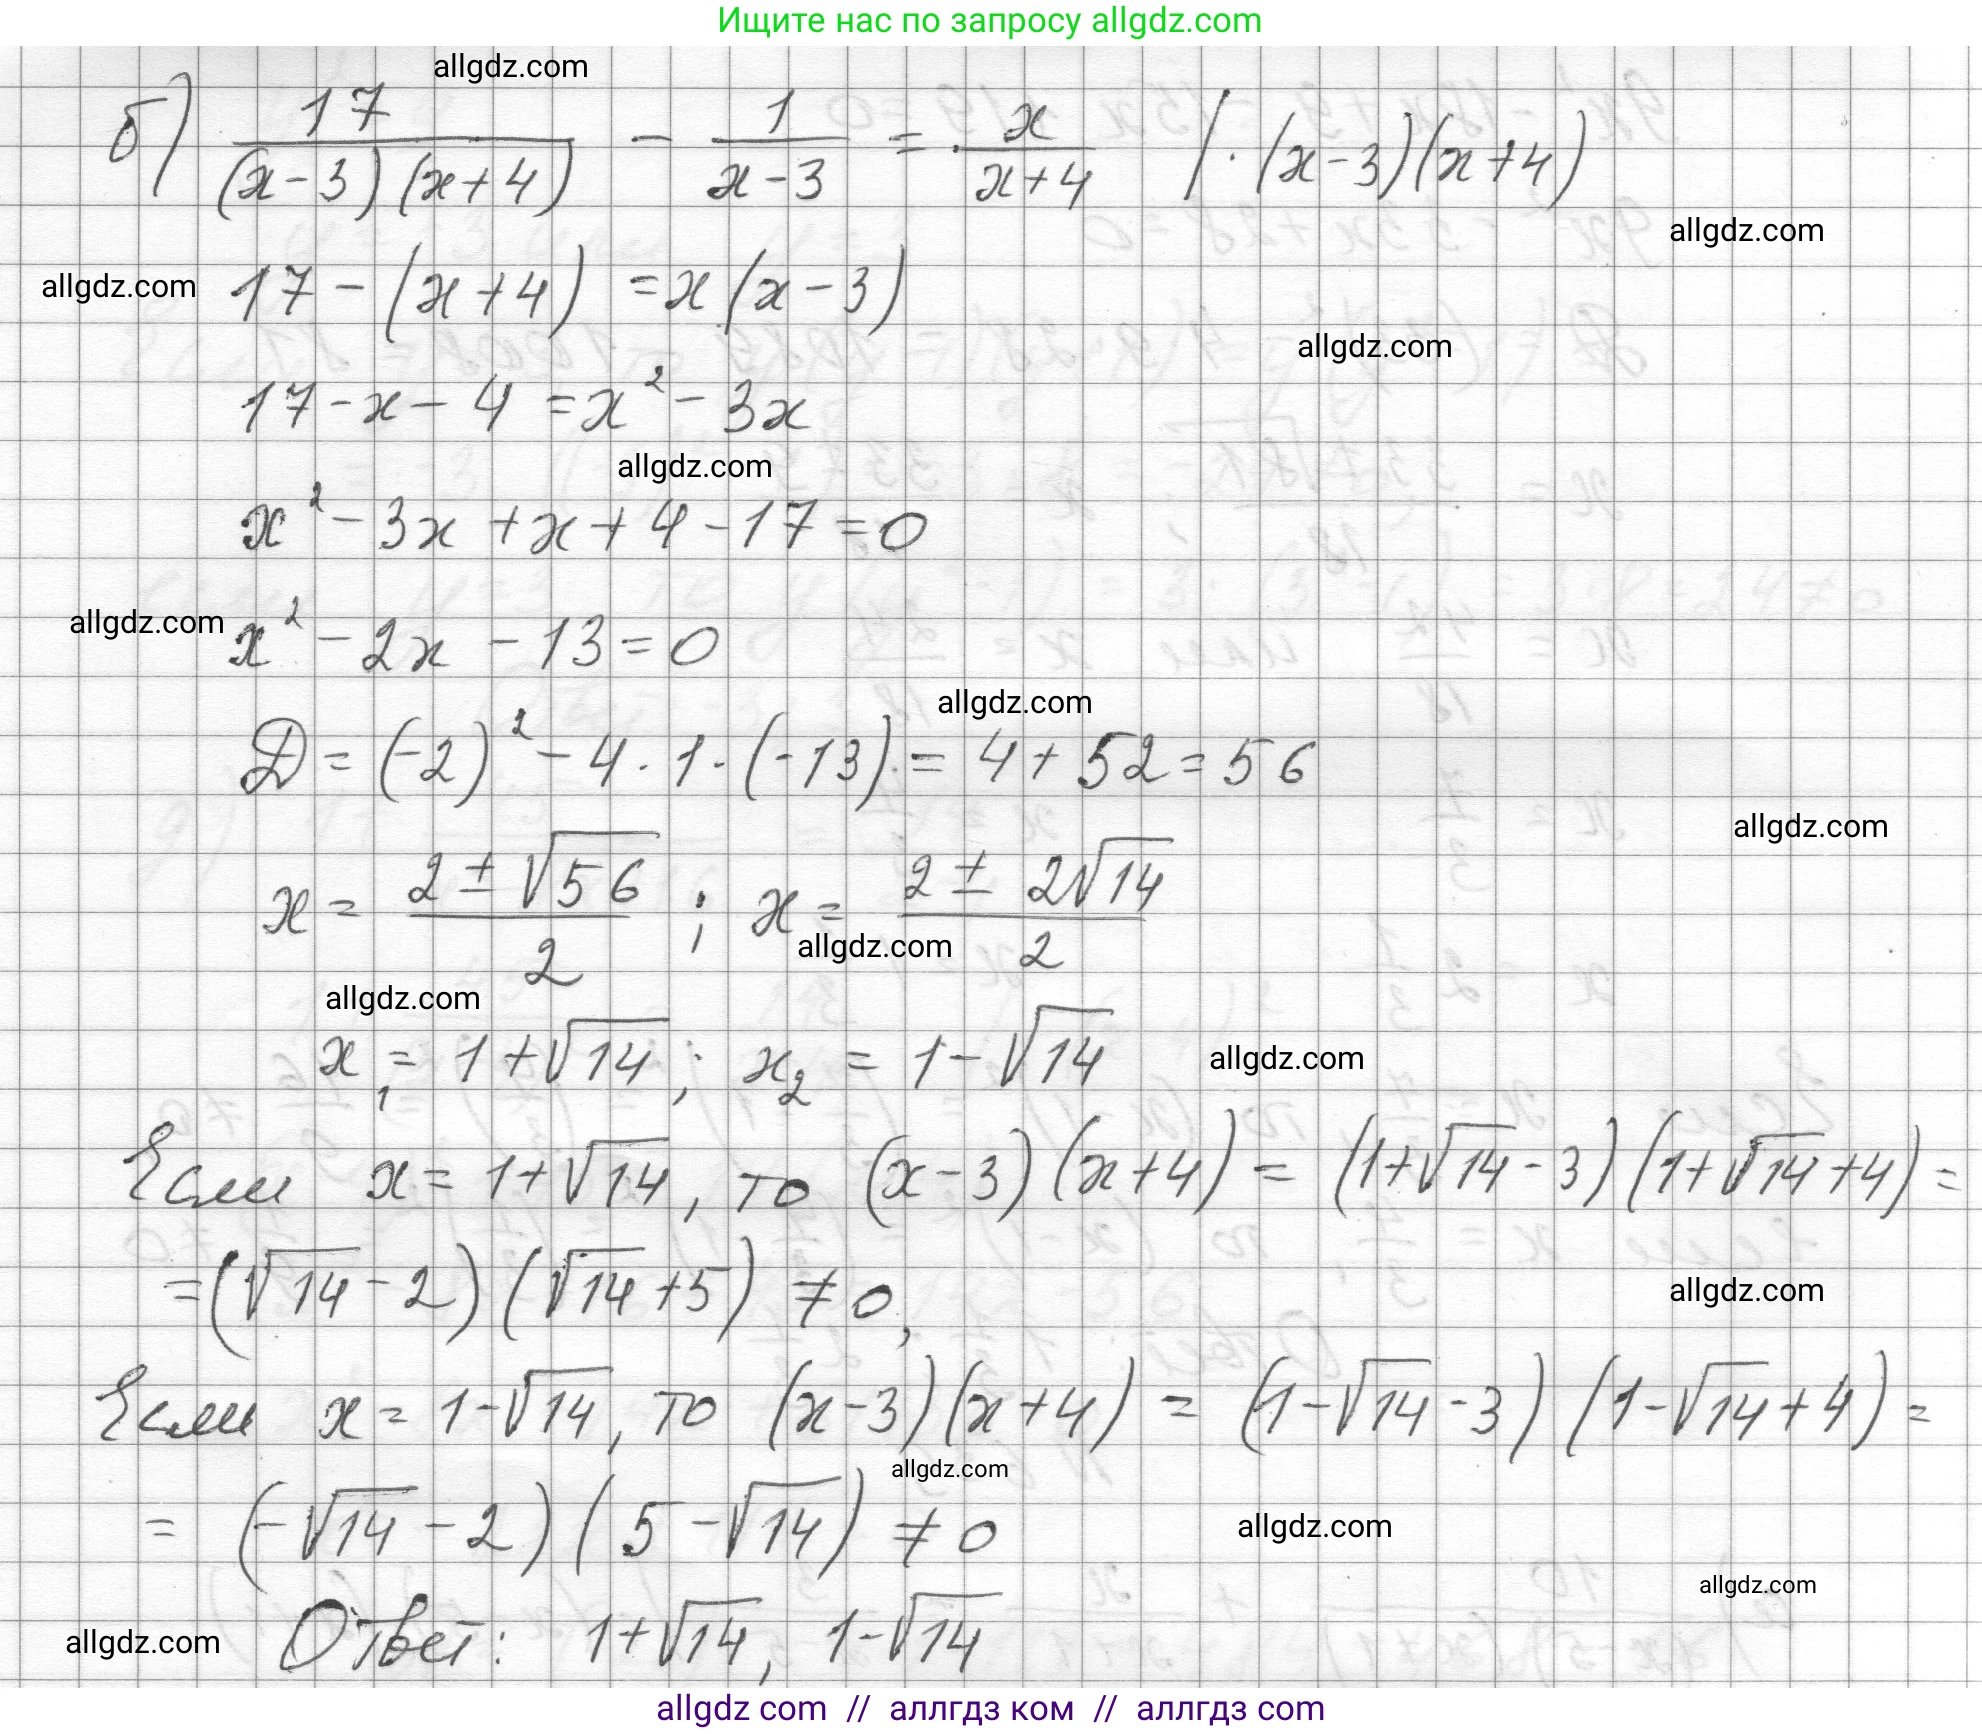 Ищите нас по запросу allgdz.com
allgdz.com
б) 17/((x-3)(x+4)) - 1/(x-3) = x/(x+4) | · (x-3)(x+4)
allgdz.com
allgdz.com
17 - (x+4) = x(x-3)
allgdz.com
17 - x - 4 = x² - 3x
allgdz.com
x² - 3x + x + 4 - 17 = 0
allgdz.com
x² - 2x - 13 = 0
allgdz.com
D = (-2)² - 4 · 1 · (-13) = 4 + 52 = 56
allgdz.com
x = (2 ± √56)/2 ; x = (2 ± 2√14)/2
allgdz.com
allgdz.com
x₁ = 1 + √14 ; x₂ = 1 - √14
allgdz.com
Если x = 1 + √14, то (x-3)(x+4) = (1+√14-3)(1+√14+4) =
= (√14 - 2)(√14 + 5) ≠ 0,
allgdz.com
Если x = 1 - √14, то (x-3)(x+4) = (1-√14-3)(1-√14+4) =
allgdz.com
= (-√14 - 2)(5 - √14) ≠ 0
allgdz.com
allgdz.com
allgdz.com
Ответ: 1+√14, 1-√14
allgdz com // аллгдз ком // аллгдз com